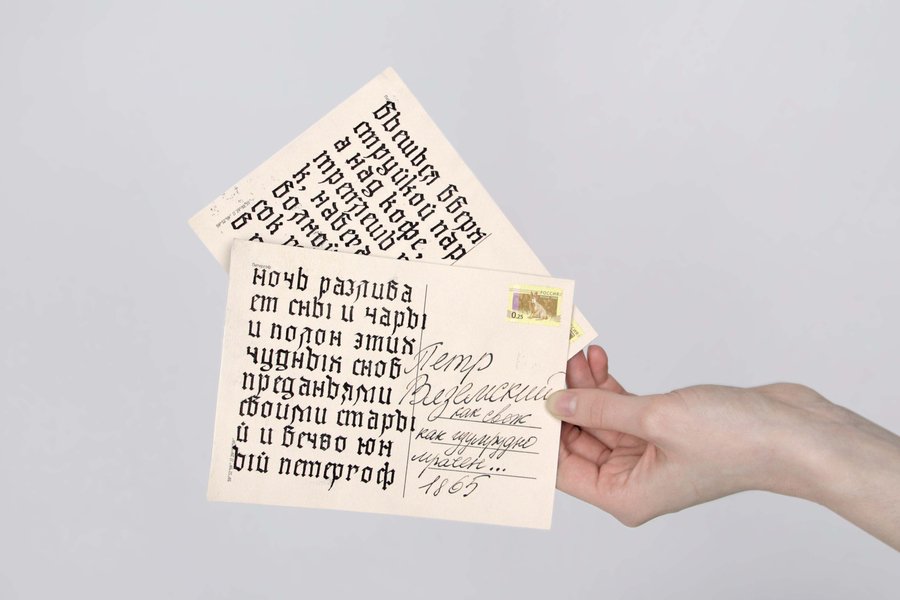 вьешься вверх
струйкой пар
а над кофе,
треплешь
к, набега
волной
сок
Петергоф
ночь разлива
ет сны и чары
и полон этих
чудных снов
преданьями
своими стары
й и вечно юн
ый петергоф
РОССИЯ
0,25
Петр
Вяземский
как свеж
как изумрудно
мрачен...
1865